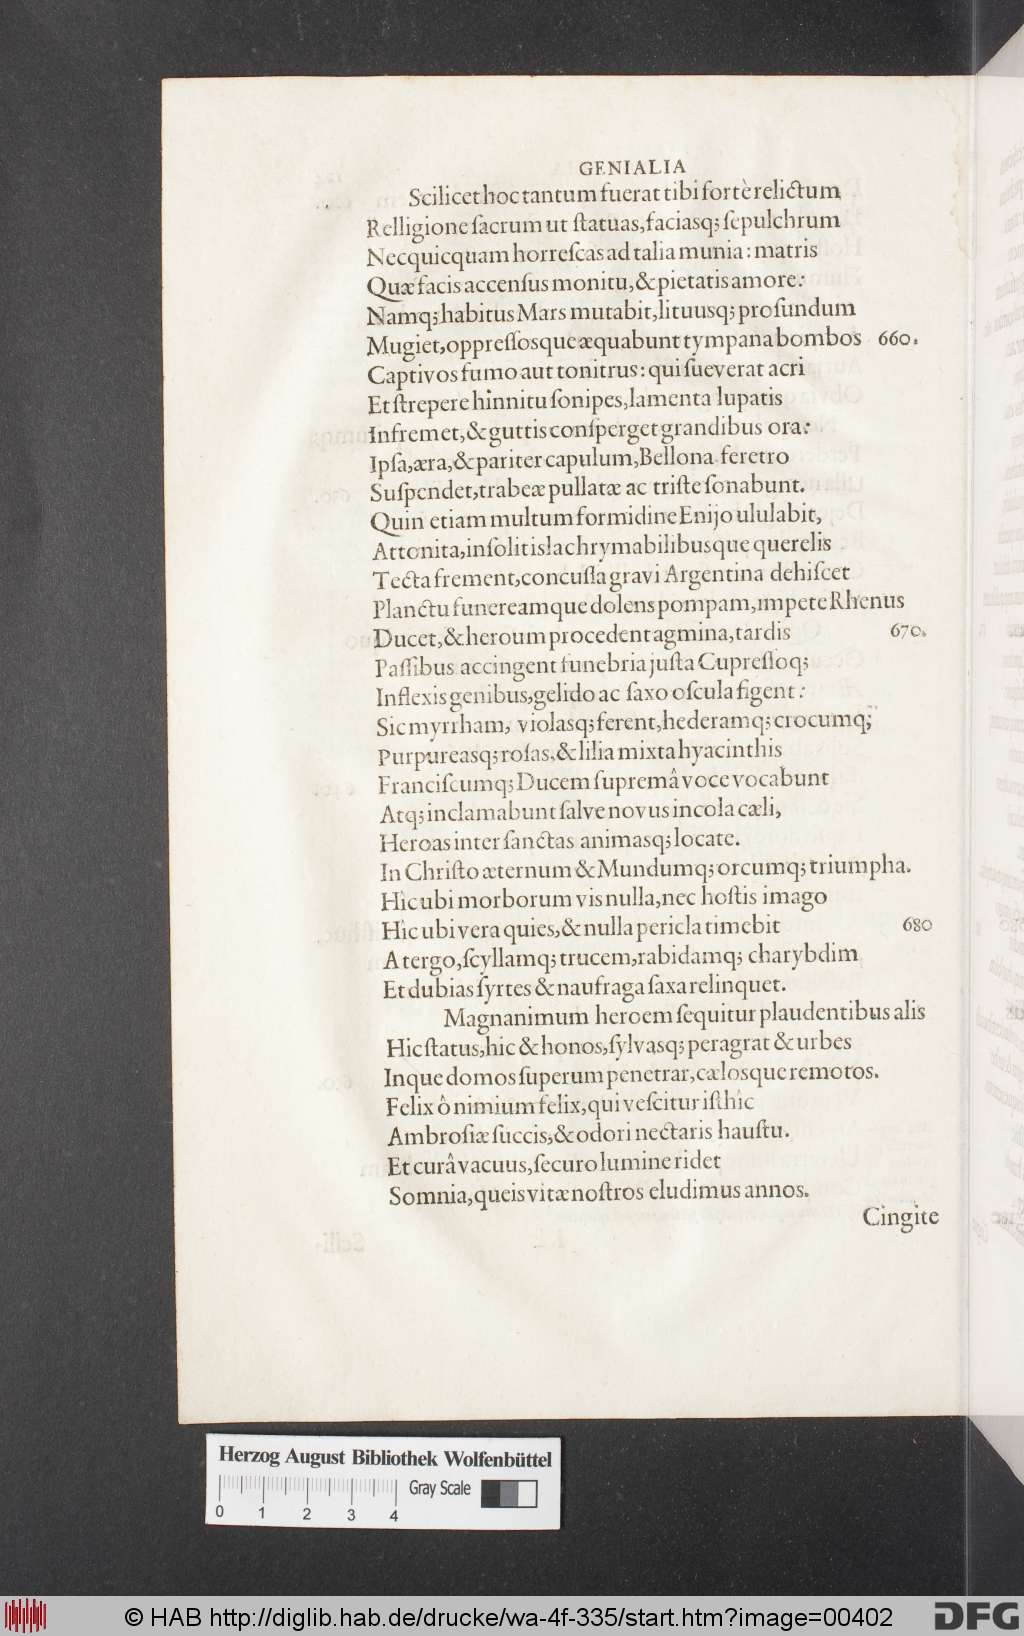 GENIALIA
Scilicet hoc tantum fuerat tibi fortè relictum
Relligione ſacrum ut ſtatuas, faciasq; ſepulchrum
Nec quicquam horreſcas ad talia munia: matris
Quæ facis accenſus monitu, & pietatis amore:
Namq; habitus Mars mutabit, lituusq; profundum
Mugiet, oppreſſosque æquabunt tympana bombos 660.
Captivos fumo aut tonitrus: qui ſueverat acri
Et ſtrepere hinnitu ſonipes, lamenta lupatis
Infremet, & guttis conſperget grandibus ora:
Ipſa, æra, & pariter capulum, Bellona feretro
Suſpendet, trabeæ pullatæ ac triſte ſonabunt.
Quin etiam multum formidine Enijo ululabit,
Attonita, inſolitis lachrymabilibusque querelis
Tecta frement, concuſſa gravi Argentina dehiſcet
Planctu funereamque dolens pompam, impete Rhenus
Ducet, & heroum procedent agmina, tardis 670.
Paſſibus accingent funebria juſta Cupreſſoq;
Inflexis genibus, gelido ac ſaxo oſcula figent:
Sic myrrham, violasq; ferent, hederamq; crocumq;
Purpureasq; roſas, & lilia mixta hyacinthis
Franciſcumq; Ducem ſupremâ voce vocabunt
Atq; inclamabunt ſalve novus incola cæli,
Heroas inter ſanctas animasq; locate.
In Chriſto æternum & Mundumq; orcumq; triumpha.
Hîc ubi morborum vis nulla, nec hoſtis imago
Hîc ubi vera quies, & nulla pericla timebit 680
A tergo, ſcyllamq; trucem, rabidamq; charybdim
Et dubias ſyrtes & naufraga ſaxa relinquet.
Magnanimum heroem ſequitur plaudentibus alis
Hic ſtatus, hic & honos, ſylvasq; peragrat & urbes
Inque domos ſuperum penetrar, cælosque remotos.
Felix ô nimium felix, qui veſcitur iſthîc
Ambroſiæ ſuccis, & odori nectaris hauſtu.
Et curâ vacuus, ſecuro lumine ridet
Somnia, queis vitæ noſtros eludimus annos.
Cingite
Herzog August Bibliothek Wolfenbüttel
Gray Scale
0 1 2 3 4
© HAB http://diglib.hab.de/drucke/wa-4f-335/start.htm?image=00402 DFG